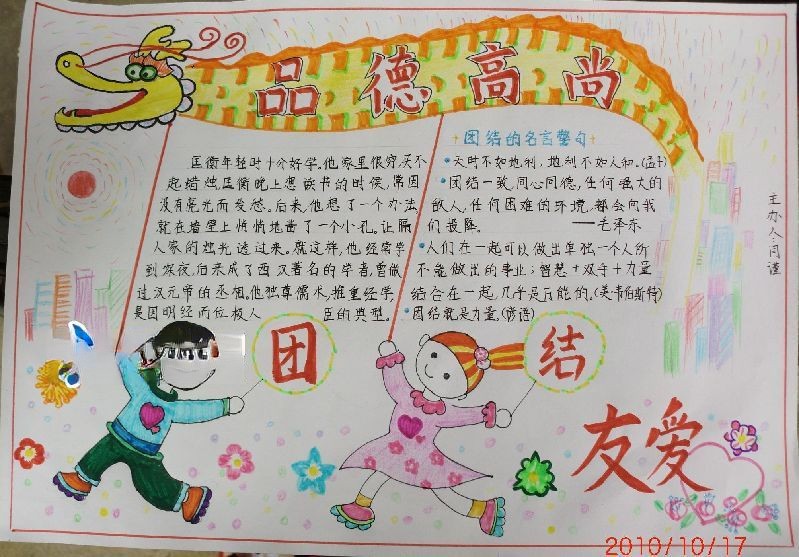 品德高尚
匡衡年轻时十分好学。他家里很穷,买不
起蜡烛,匡衡晚上想读书的时候,常因
没有亮光而发愁。后来,他想了一个办法,
就在墙壁上悄悄地凿了一个小孔。让隔
人家的烛光透过来。就这样,他经常学
到深夜,后来成了西汉著名的学者,曾做
过汉元帝的丞相。他独尊儒术,推重经学,
是因明经而位极人臣的典型。
团结的名言警句
天时不如地利,地利不如人和。(孟子)
团结一致,同心同德,任何强大的
敌人,任何困难的环境,都会向我
们投降。——毛泽东
人们在一起可以做出单独一个人所
不能做出的事业;智慧+双手+力量
结合在一起,几乎是万能的。(美·韦伯斯特)
团结就是力量。(谚语)
主办人:闫谨
团
结
友爱
2010/10/17